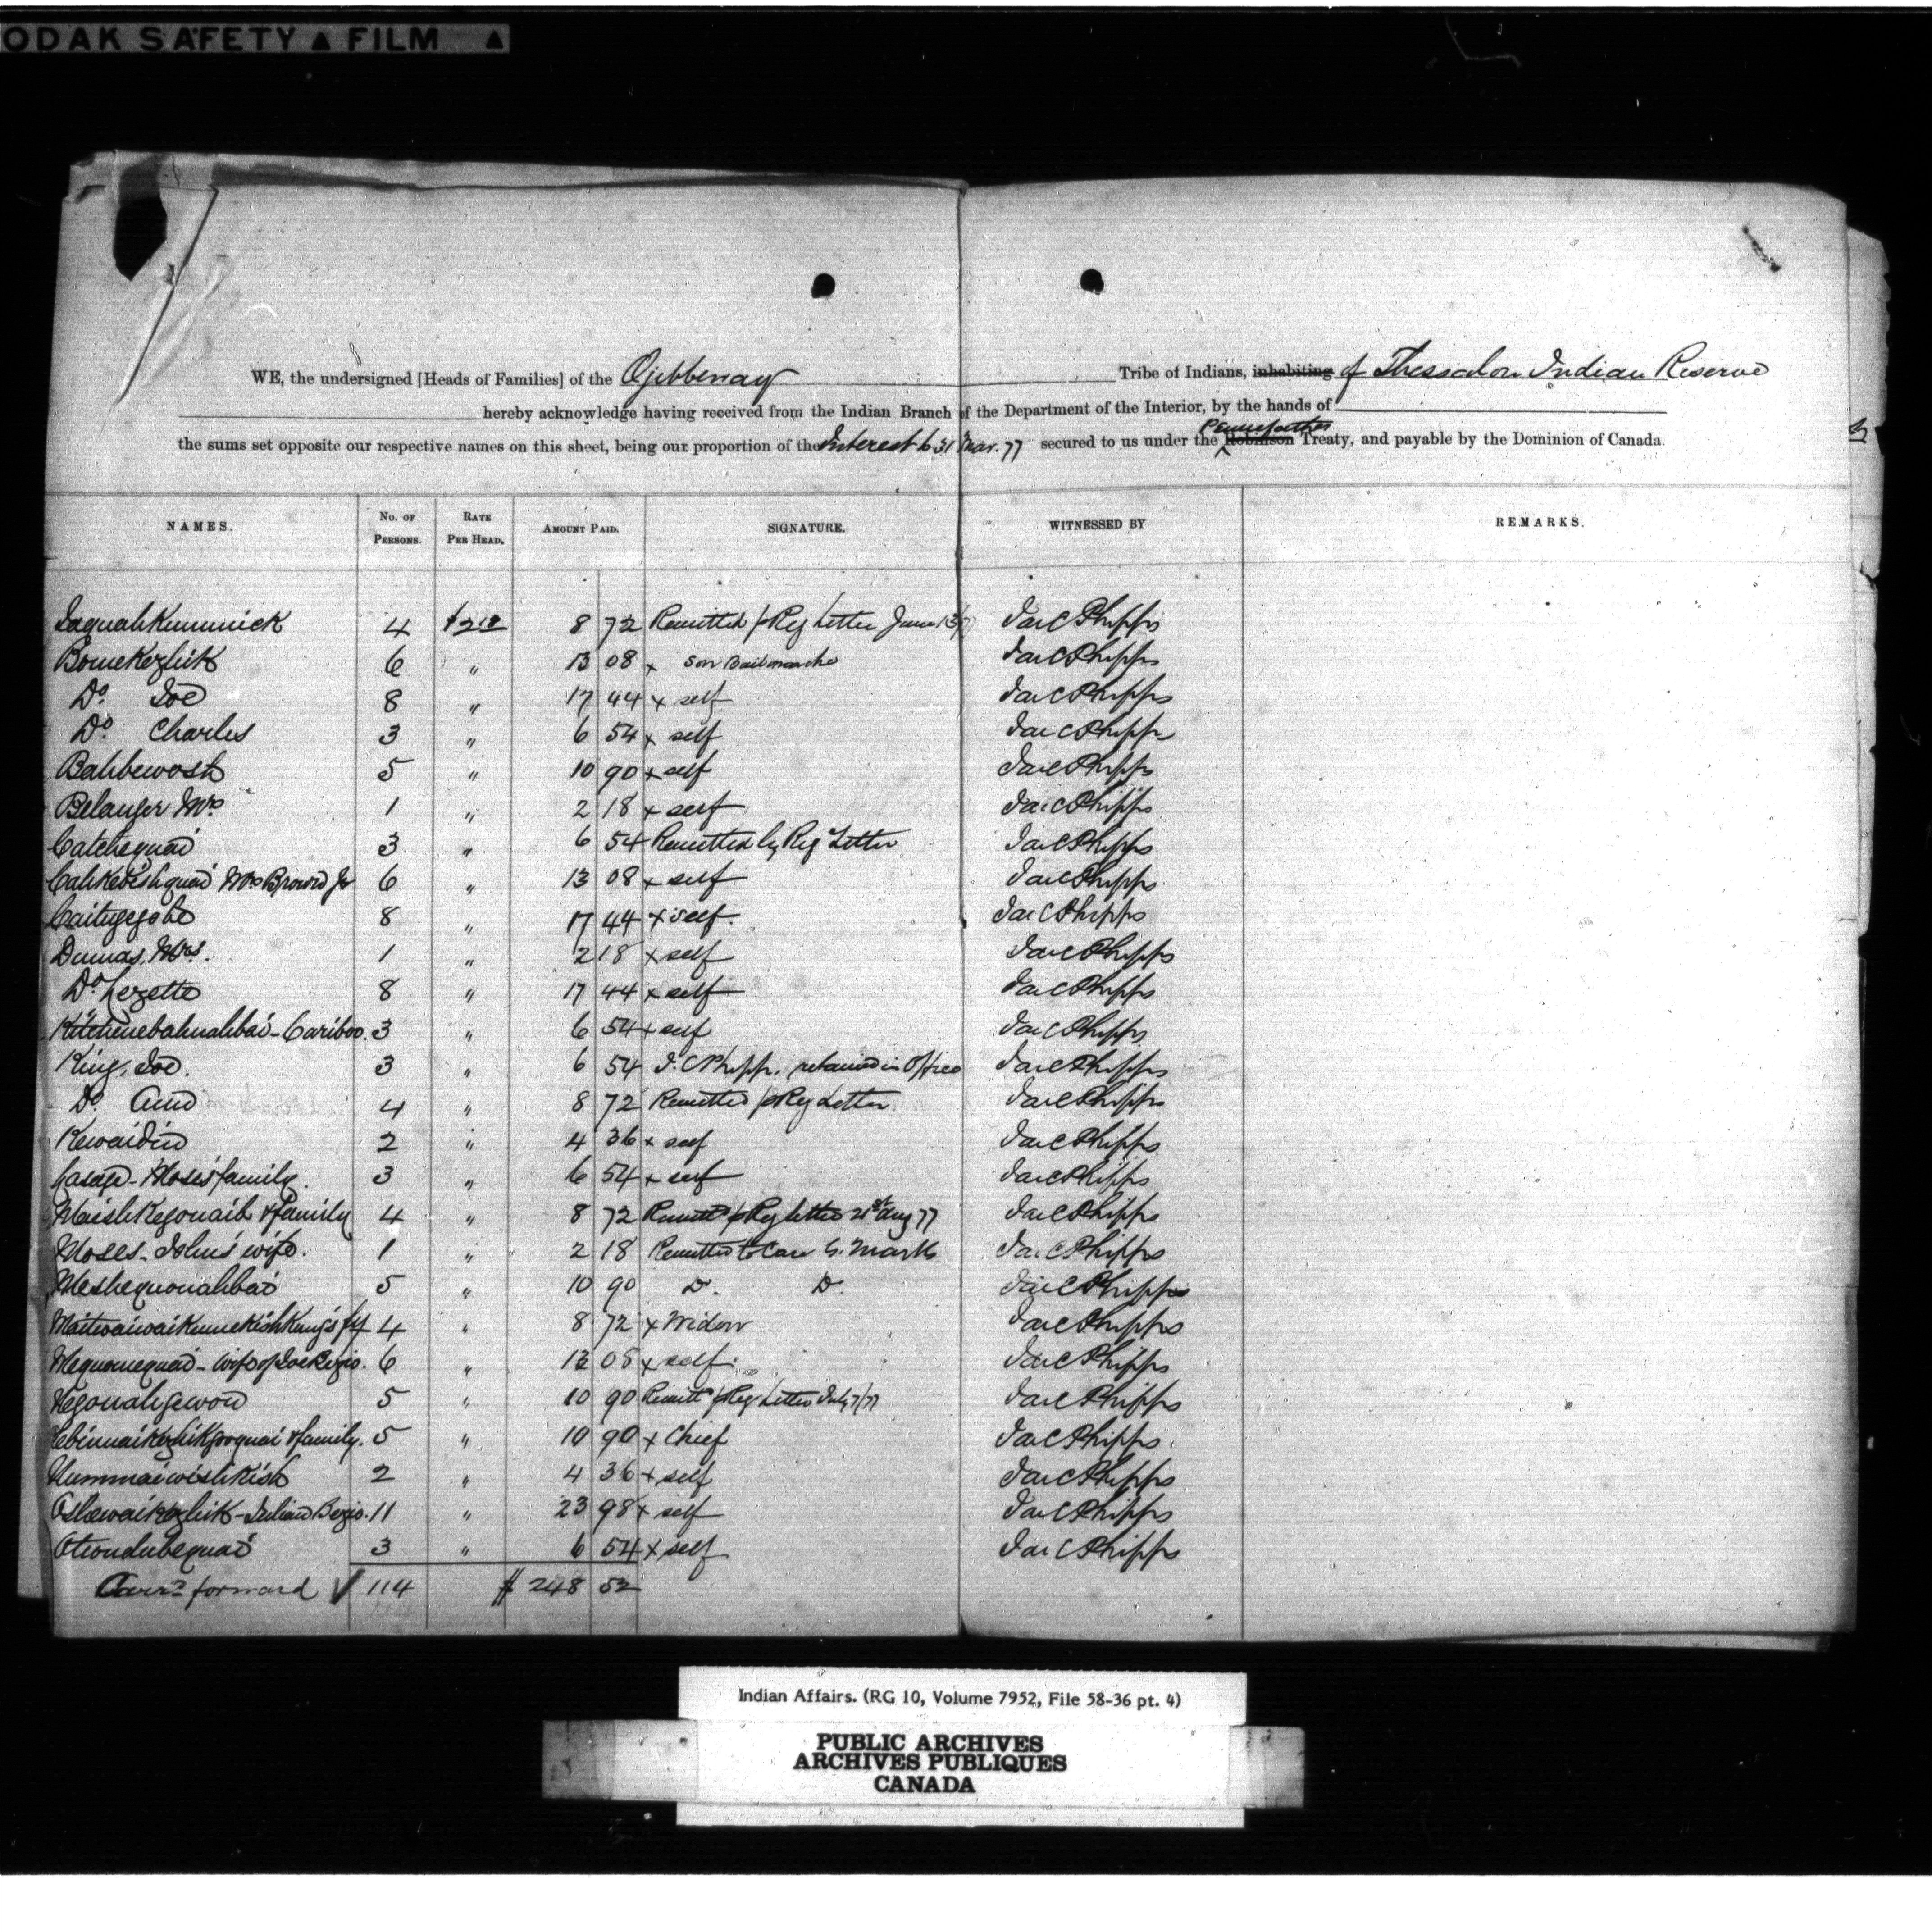 ODAK SAFETY ▲ FILM ▲
WE, the undersigned [Heads of Families] of the Ojibbeway Tribe of Indians, inhabiting of Thessalon Indian Reserve
hereby acknowledge having received from the Indian Branch of the Department of the Interior, by the hands of
Pennefather
the sums set opposite our respective names on this sheet, being our proportion of the Interest to 31 Mar. 77 secured to us under the Robinson Treaty, and payable by the Dominion of Canada.
NAMES. No. of Persons. Rate Per Head. Amount Paid. SIGNATURE. WITNESSED BY REMARKS.
4 $2.18 8 72 Remitted p Reg Letter June 13/77 Jas C Phipps
Bomekezhik 6 " 13 08 x Son Jas C Phipps
Do. Joe 8 " 17 44 x self Jas C Phipps
Do. Charles 3 " 6 54 x self Jas C Phipps
Bahbewosh 5 " 10 90 x self Jas C Phipps
Belanger Mrs 1 " 2 18 x self Jas C Phipps
Catchequai 3 " 6 54 Remitted by Reg Letter Jas C Phipps
Cahkebishquai Mrs Brown Jr 6 " 13 08 x self Jas C Phipps
8 " 17 44 x self. Jas C Phipps
Dumas, Mrs. 1 " 2 18 x self Jas C Phipps
Do Lezette 8 " 17 44 x self Jas C Phipps
Kitchenebahnahbai - Cariboo. 3 " 6 54 x self Jas C Phipps
King, Joe. 3 " 6 54 J. C Phipps. retained in Office Jas C Phipps
Do. Ann 4 " 8 72 Remitted p Reg Letter Jas C Phipps
Kewaidin 2 " 4 36 x self Jas C Phipps
Moses family. 3 " 6 54 x self Jas C Phipps
Maishkegonaib & family 4 " 8 72 Remittd p Reg letter 21st Aug 77 Jas C Phipps
Moses - John's wife. 1 " 2 18 Remitted to care G. Marks Jas C Phipps
Meshequonahbai 5 " 10 90 Do. Do. Jas C Phipps
4 " 8 72 x Widow Jas C Phipps
Mequomequai - wife of Joe 6 " 13 08 x self. Jas C Phipps
Negonahgewon 5 " 10 90 Remittd p Reg Letter July 7/77 Jas C Phipps
& family. 5 " 10 90 x Chief Jas C Phipps
Nummaiwishkish 2 " 4 36 x self Jas C Phipps
11 " 23 98 x self Jas C Phipps
3 " 6 54 x self Jas C Phipps
Carrd forward 114 $ 248 52
Indian Affairs. (RG 10, Volume 7952, File 58-36 pt. 4)
PUBLIC ARCHIVES
ARCHIVES PUBLIQUES
CANADA